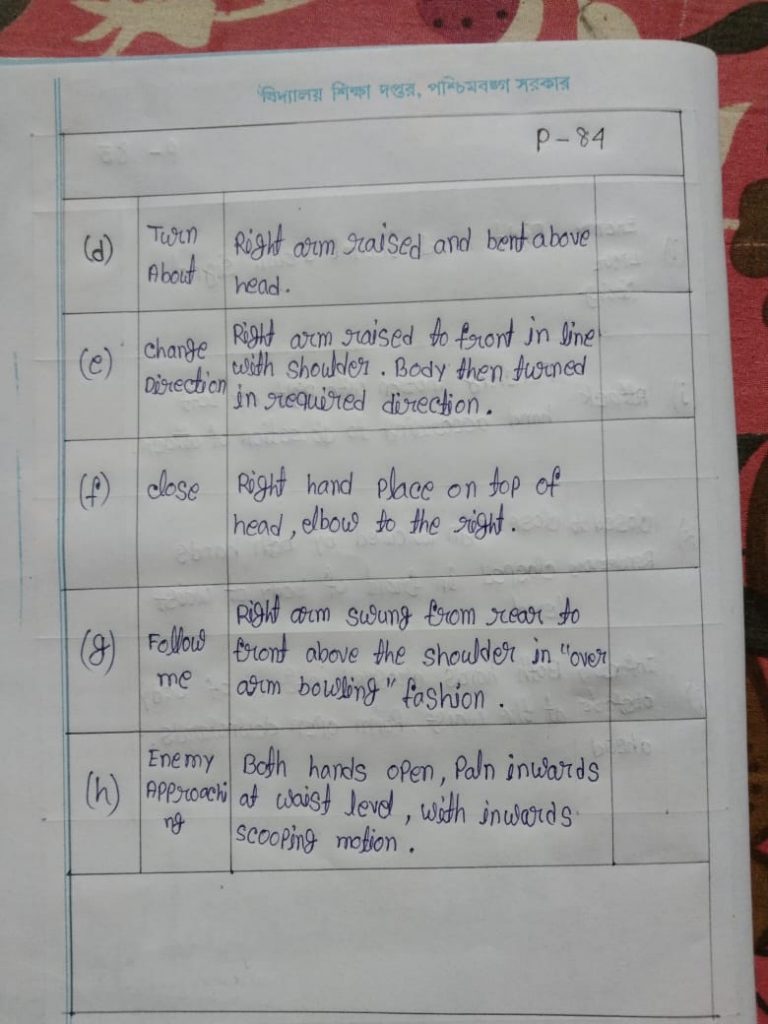 বিদ্যালয় শিক্ষা দপ্তর, পশ্চিমবঙ্গ সরকার
P - 84
(d) Turn About Right arm raised and bent above
head.
(e) Change Direction Right arm raised to front in line
with shoulder. Body then turned
in required direction.
(f) close Right hand place on top of
head, elbow to the right.
(g) Follow me Right arm swung from rear to
front above the shoulder in "over
arm bowling" fashion.
(h) Enemy Approaching Both hands open, Paln inwards
at waist level, with inwards
scooping motion.